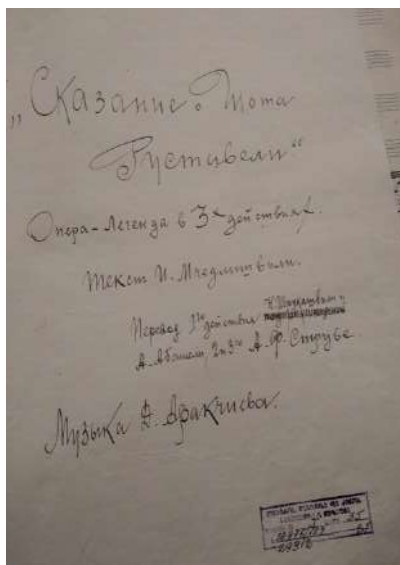 „Сказание о Шота
Руставели“
Опера-Легенда в 3х действиях.
Текст И. Мчедлишвили.
Перевод 1го действия
А. Абашели, 2 и 3го А. Ф. Струве
Музыка Д. Аракчиева.